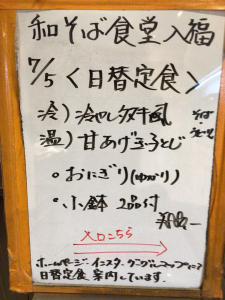 和そば食堂入福
7/5 <日替定食>
冷) 冷やし
そば
温) 甘あげ玉子とじ
・おにぎり(ゆかり)
・小鉢 2品付
入口こちら
ホームページ、インスタ、グーグルマップにて
日替定食案内しています。